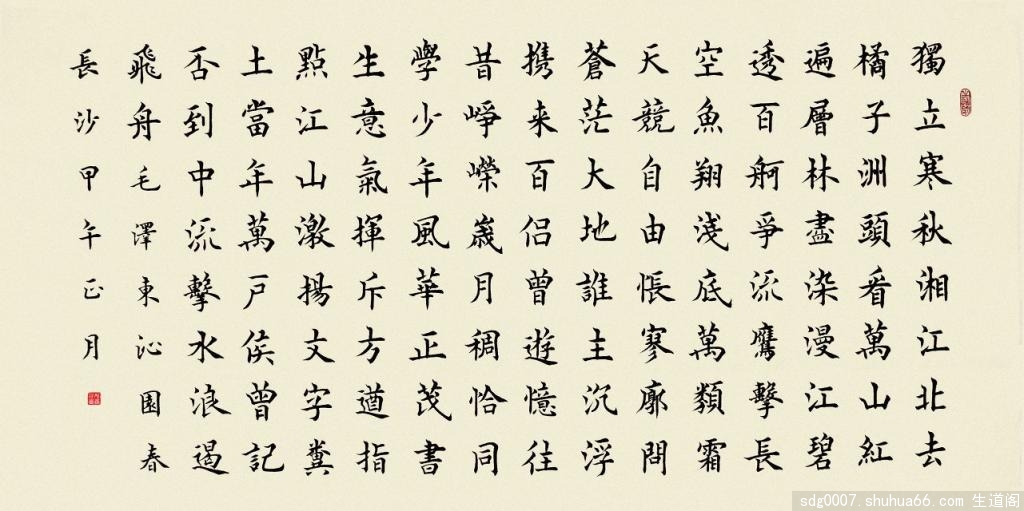 獨立寒秋湘江北去
橘子洲頭看萬山紅
遍層林盡染漫江碧
透百舸爭流鷹擊長
空魚翔淺底萬類霜
天競自由悵寥廓問
蒼茫大地誰主沉浮
携来百侣曾遊憶往
昔崢嶸歲月稠恰同
學少年風華正茂書
生意氣揮斥方遒指
點江山激揚文字糞
土當年萬户侯曾記
否到中流擊水浪遏
飛舟毛澤東沁園春
長沙甲午正月
sdg0007.shuhua66.com 生道阁